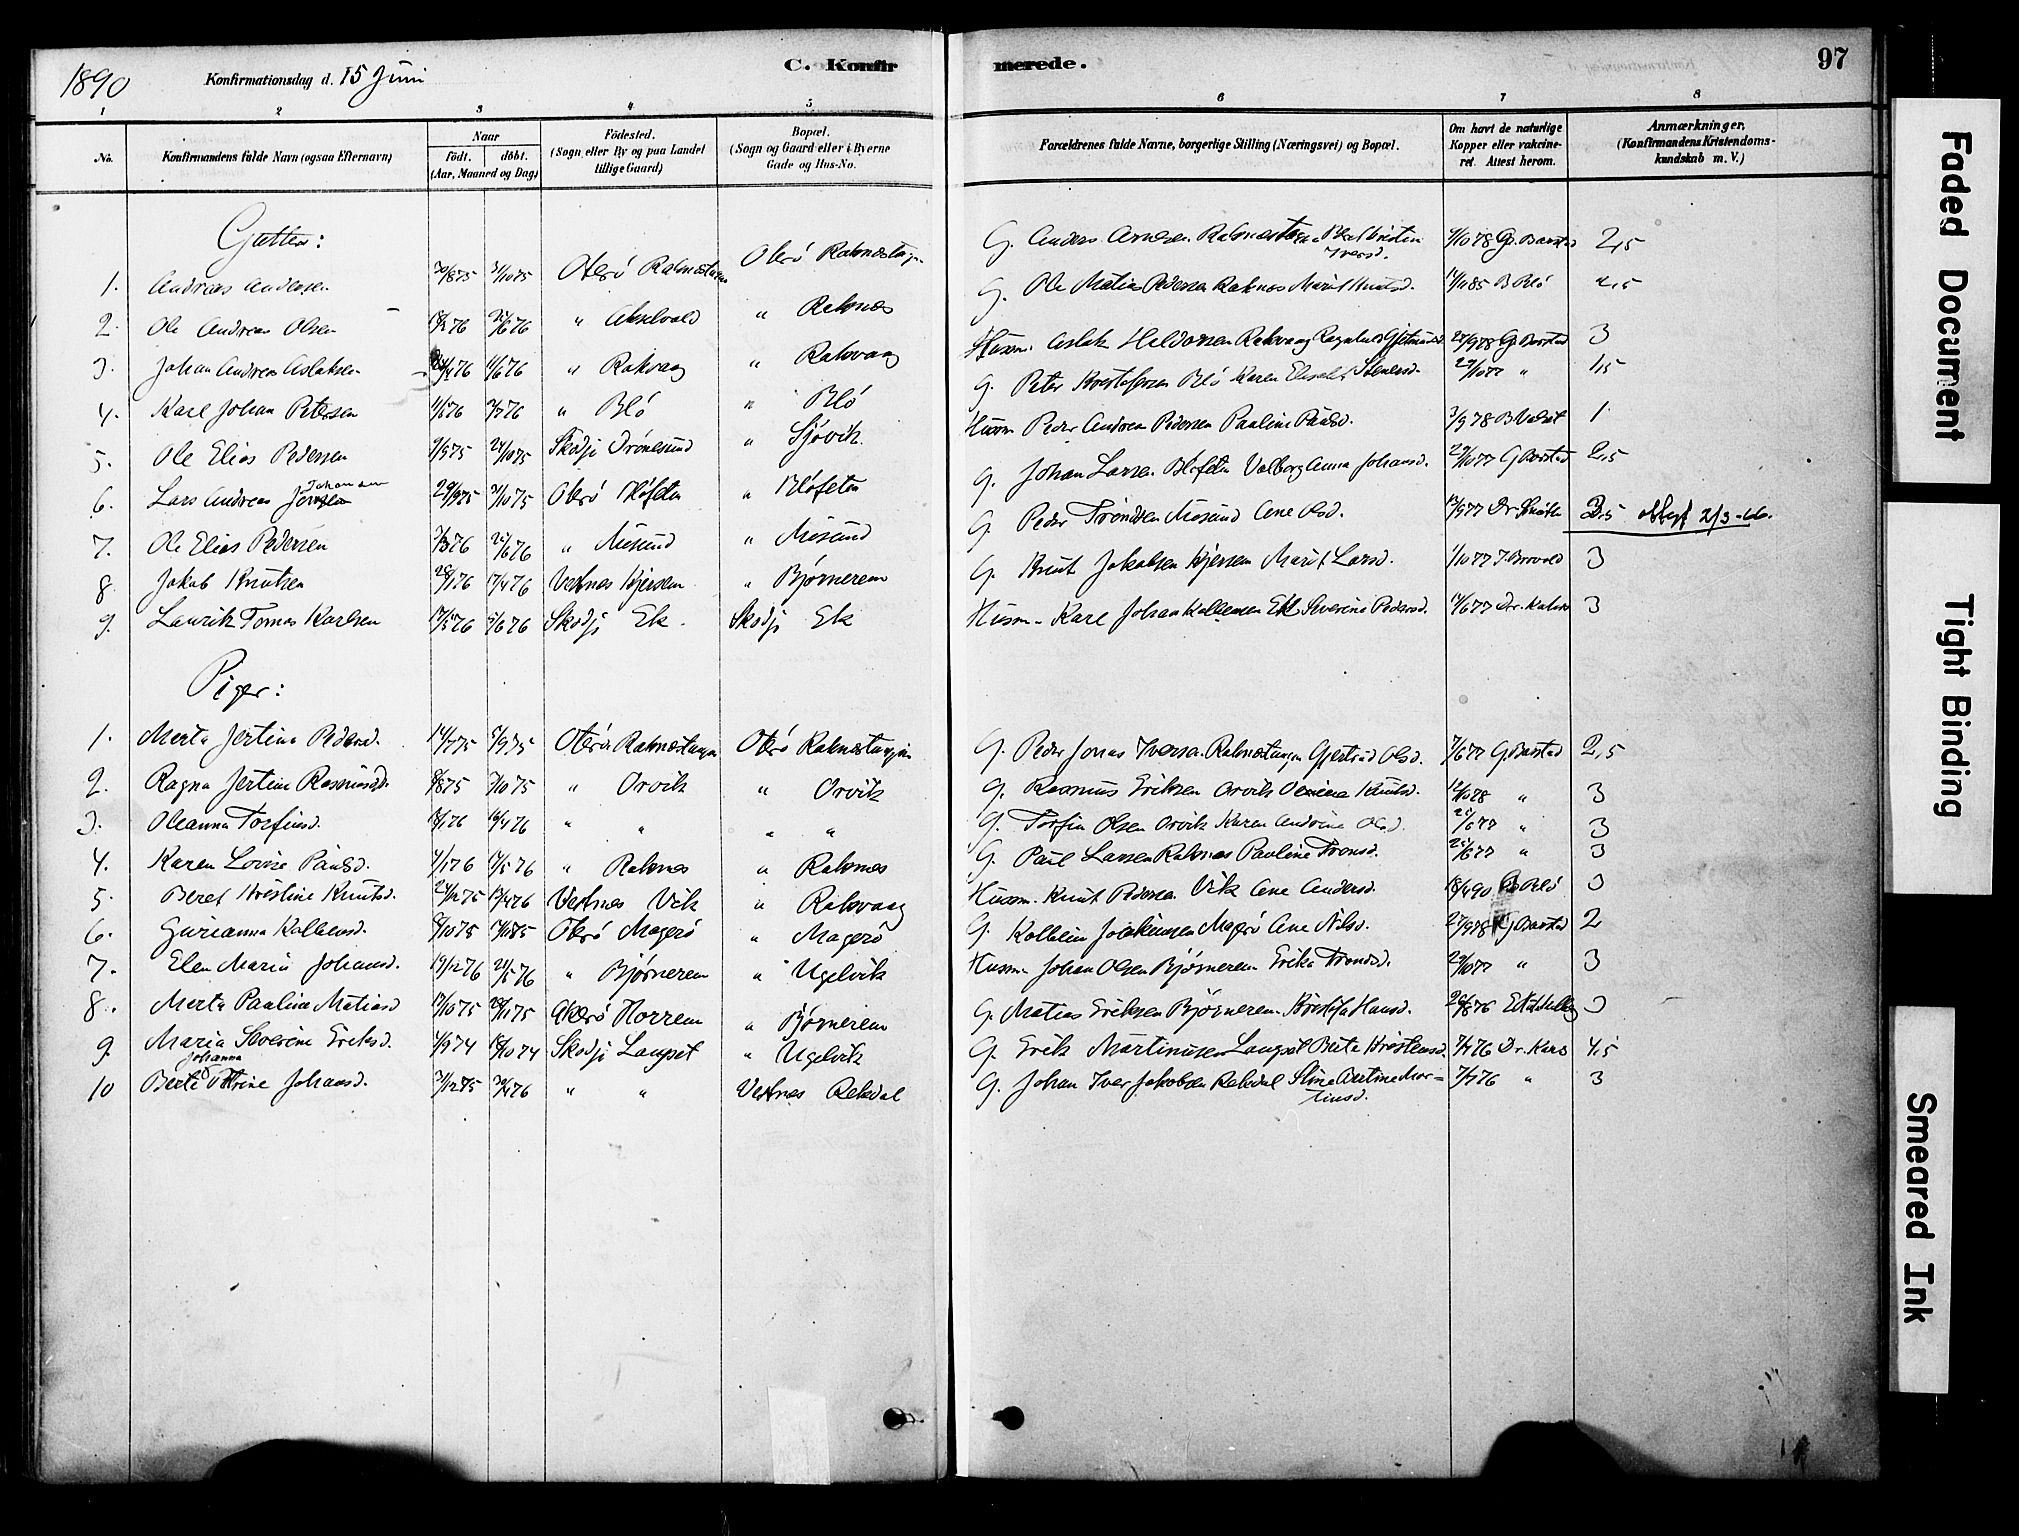 1890
Konfirmationsdag d. 15 Juni
C. Konfir merede.
97
1 2 3 4 5 6 7 8
No.
Konfirmandens fulde Navn (ogsaa Efternavn)
Naar
födt. döbt.
(Aar, Maaned og Dag)
Födested.
(Sogn eller By og paa Landet
tillige Gaard)
Bopæl.
(Sogn og Gaard eller i Byerne
Gade og Hus-No.
Forældrenes fulde Navne, borgerlige Stilling (Næringsvei) og Bopæl.
Om havt de naturlige
Kopper eller vakcine-
ret. Attest herom.
Anmærkninger.
(Konfirmandens Kristendoms-
kundskab m. V.)
Gutter:
1. Andreas Andersen 30/875 31/1075 Oterö Raknestangen Oterö Raknestangen G. Anders Arnesen Raknestangen Iversd. 4/1078 G. Barstad 2,5
2. Ole Andreas Olsen 76 25/676 " Akselvold " Raknes G. Ole Matias Pedersen Raknes Marit Knutsd. 85 B Blö 2,5
3. Johan Andreas Aslaksen 76 11/676 " Rakvaag " Rakvaag Husm. Aslak Haldorsen Rakvaag Gjetmundsd. 27/978 G. Barstad 3
4. Karl Johan Petersen 76 76 " Blö " Blö G. Peter Kristofersen Blö Karen Elisabet Stenersd. 29/1077 " 1,5
5. Ole Elias Pedersen 9/975 24/1075 Skodje Drönesund " Sjövik Husm. Peder Andreas Pedersen Pauline Paulsd. 3/978 B. 1
6. Lars Andreas Johansen 29/975 31/1075 Oterö Blöfeten " Blöfeten G. Johan Larsen Blöfeten Valborg Anna Johansd. 29/1077 G Barstad 2,5
7. Ole Elias Pedersen 76 25/676 " Misund " Misund G. Peder Trondsen Misund Ane Olsd. 13/977 Dr. 2,5 2/3-16.
8. Jakob Knutsen 28/176 17/476 Vestnes Kjersem " Björnerem G. Knut Jakobsen Kjersem Marit Larsd. 1/1077 3
9. Laurits Tomas Karlsen 17/576 5/676 Skodje Ek Skodje Ek Husm. Karl Johan Kolbensen Ek Severine Pedersd. 14/677 Dr. Kahrs 3
Piger:
1. Merta Jertina Pedersd. 14/775 5/975 Oterö Raknestangen Oterö Raknestangen G. Peder Jonas Iversen Raknestangen Gjertrud Olsd. 7/677 G. Barstad 2,5
2. Ragna Jertine Rasmusd. 8/875 3/1075 " Orvik " Orvik G. Rasmus Eriksen Orvik Knutsd. 12/1078 " 3
3. Oleanna Torfinsd. 13/176 16/476 " " " " G. Torfin Olsen Orvik Karen Andrine Olsd. 25/677 " 3
4. Karen Lovise Paulsd. 4/176 76 " Raknes " Raknes G. Paul Larsen Raknes Pauline Tronsd. 25/677 " 3
5. Beret Kristine Knutsd. 24/1275 13/476 Vestnes Vik " Rakvaag Husm. Knut Pedersen Vik Ane Andersd. 18/490 Blö 3
6. Gurianna Kolbensd. 8/1075 75 Oterö Magerö " Magerö G. Kolbein Joakimsen Magerö Ane Nilsd. 27/978 G Barstad 2
7. Elen Maria Johansd. 19/1276 21/576 " Björnerem " Ugelvik Husm. Johan Olsen Björnerem Erika Tronsd. 29/1077 " 3
8. Merta Pauline Matiasd. 17/1075 28/1175 Akerö Horrem " Björnerem G. Matias Eriksen Björnerem Kristofa Hansd. 26/876 3
9. Maria Severine Eriksd. 4/974 18/1074 Skodje Langset " Ugelvik G. Erik Martinusen Langset Berte Kristensd. 7/776 Dr. Kahrs 4,5
10 Berte Johanna Johansd. 31/1275 30/476 " " Vestnes Rekdal G. Johan Iver Jakobsen Rekdal Stine Martinusd. 7/776 " 3
Faded Document
Tight Binding
Smeared Ink